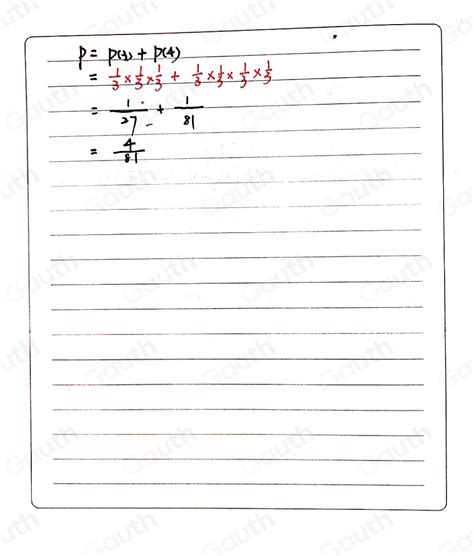 P = P(3) + P(4)
= 1/3 × 1/3 × 1/3 + 1/3 × 1/3 × 1/3 × 1/3
= 1/27 + 1/81
= 4/81
Gauth